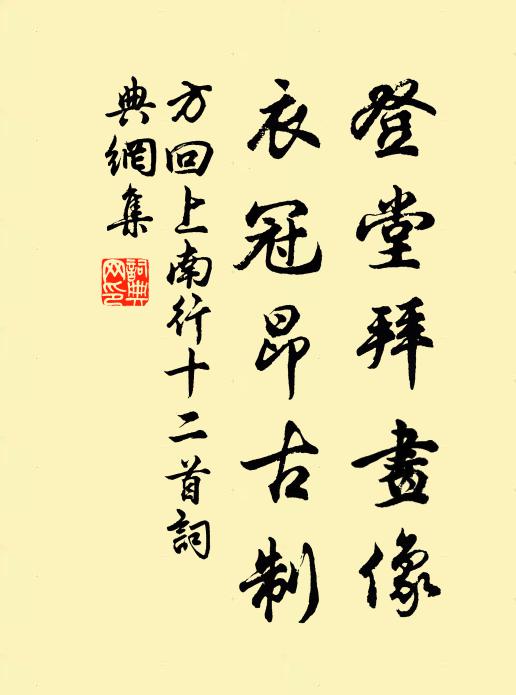 登堂拜畫像
衣冠昂古制
方回上南行十二首詞
典網集
詞典
网印